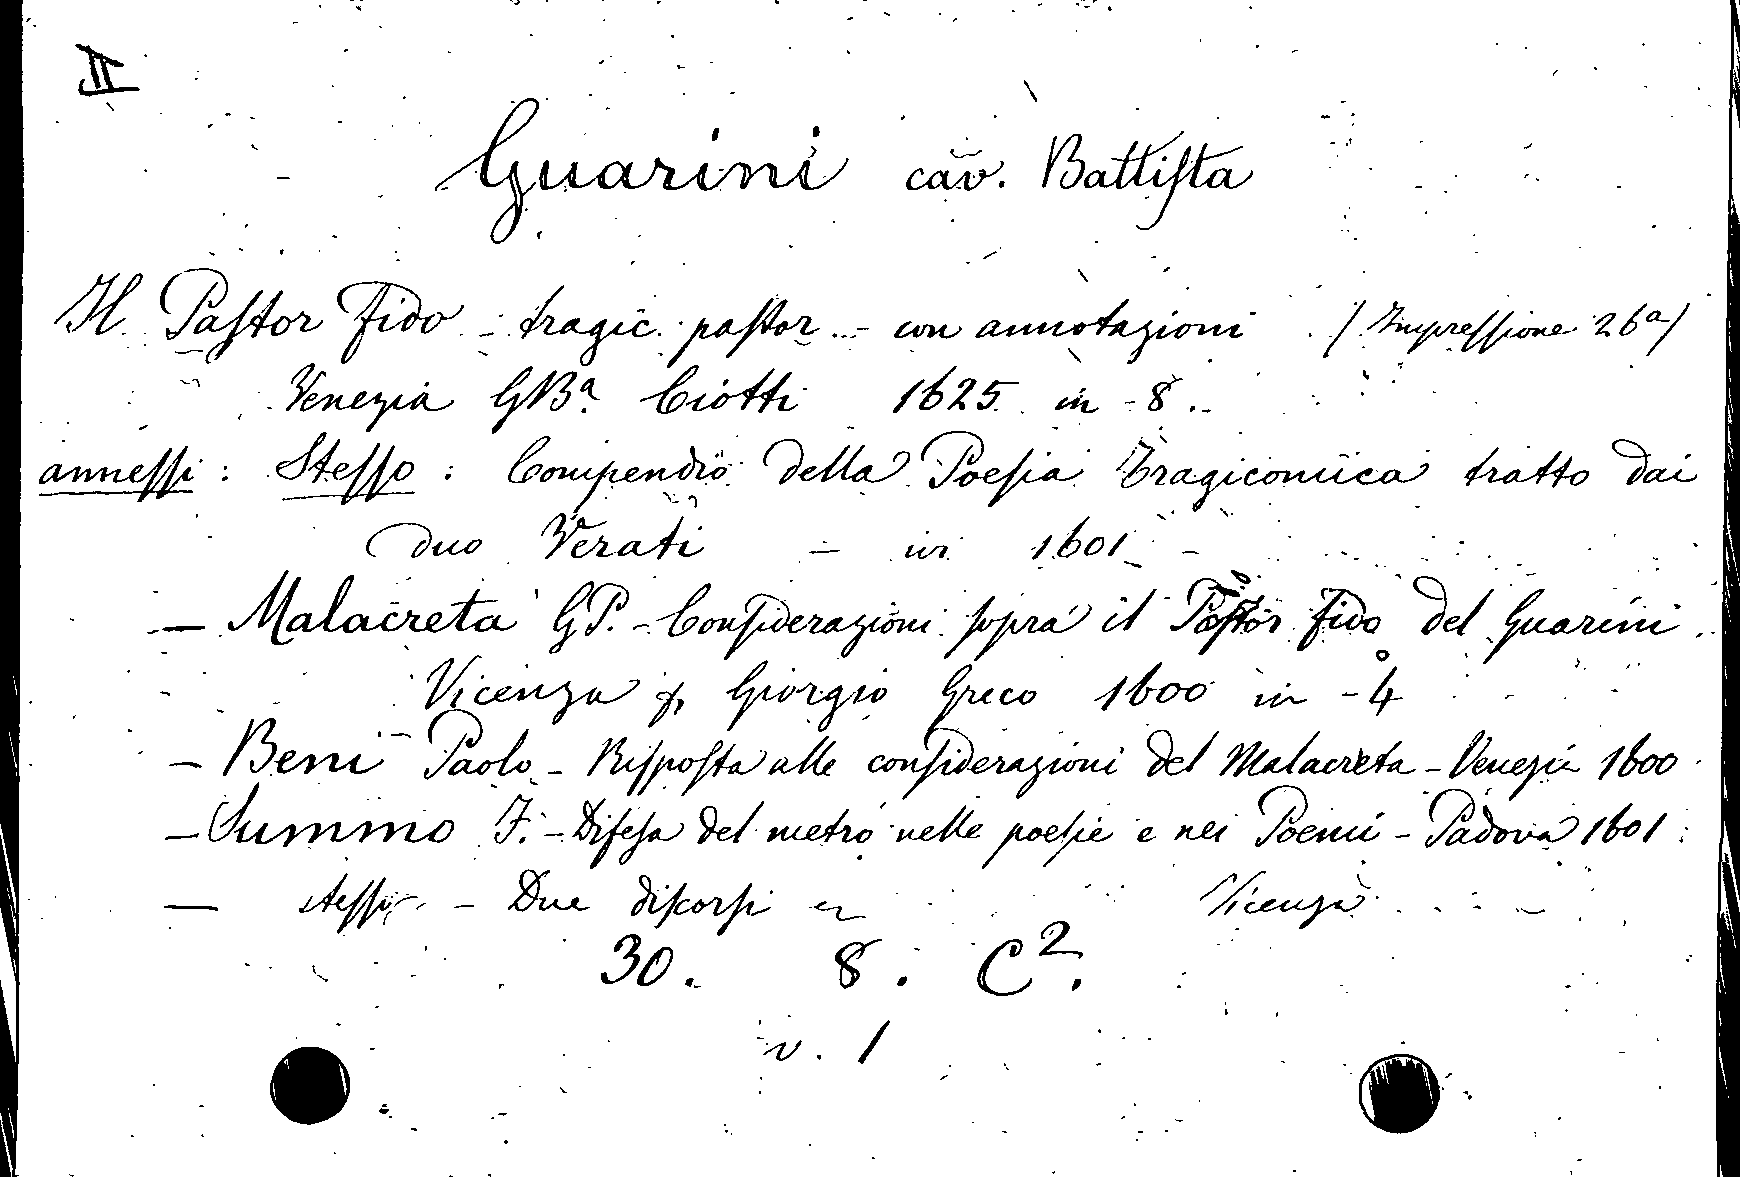 II
Guarini cav. Battista
Il Pastor Fido - tragic. pastor. - con annotazioni (Impressione 26a)
Venezia GBa. Ciotti 1625 in - 8.
annessi : Stesso : Compendio della Poesia Tragicomica tratto dai
duo Verati - in 1601 -
- Malacreta GP. - Considerazioni sopra il Pastor Fido del Guarini.
Vicenza Giorgio Greco 1600 in - 4°
- Beni Paolo - Risposta alle considerazioni del Malacreta - Venezia 1600
- Summo F. - Difesa del metro nelle poesie e nei Poemi - Padova 1601.
- stesso - Due discorsi Vicenza
30. 8. C2.
v. 1